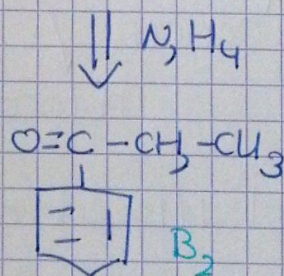 N₂H₄
O=C-CH₂-CH₃
B₂